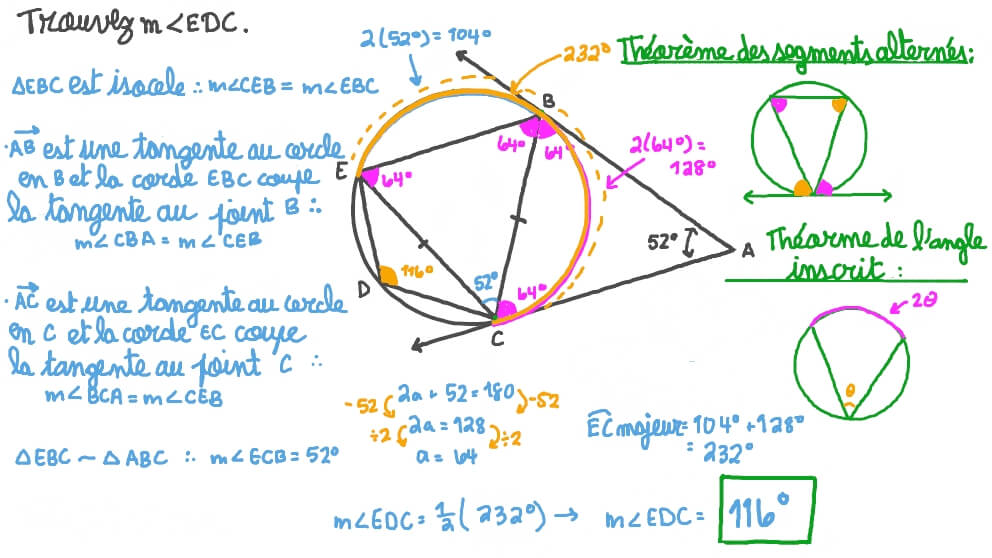 Trouvez m∠EDC.
ΔEBC est isocele ∴ m∠CEB = m∠EBC
·AB est une tangente au cercle
en B et la corde EBC coupe
la tangente au point B ∴
m∠CBA = m∠CEB
·AC est une tangente au cercle
en C et la corde EC coupe
la tangente au point C ∴
m∠BCA = m∠CEB
ΔEBC ~ ΔABC ∴ m∠ECB = 52°
2(52°) = 104°
232°
B
64°
64°
2(64°) =
128°
E
64°
52°
A
116°
D
52°
64°
C
-52
2a + 52 = 180
-52
÷2
2a = 128
÷2
a = 64
Théorème des segments alternés:
Théorme de l'angle
inscrit :
2θ
θ
EC majeur = 104° + 128°
= 232°
m∠EDC = 1/2 (232°) → m∠EDC = 116°